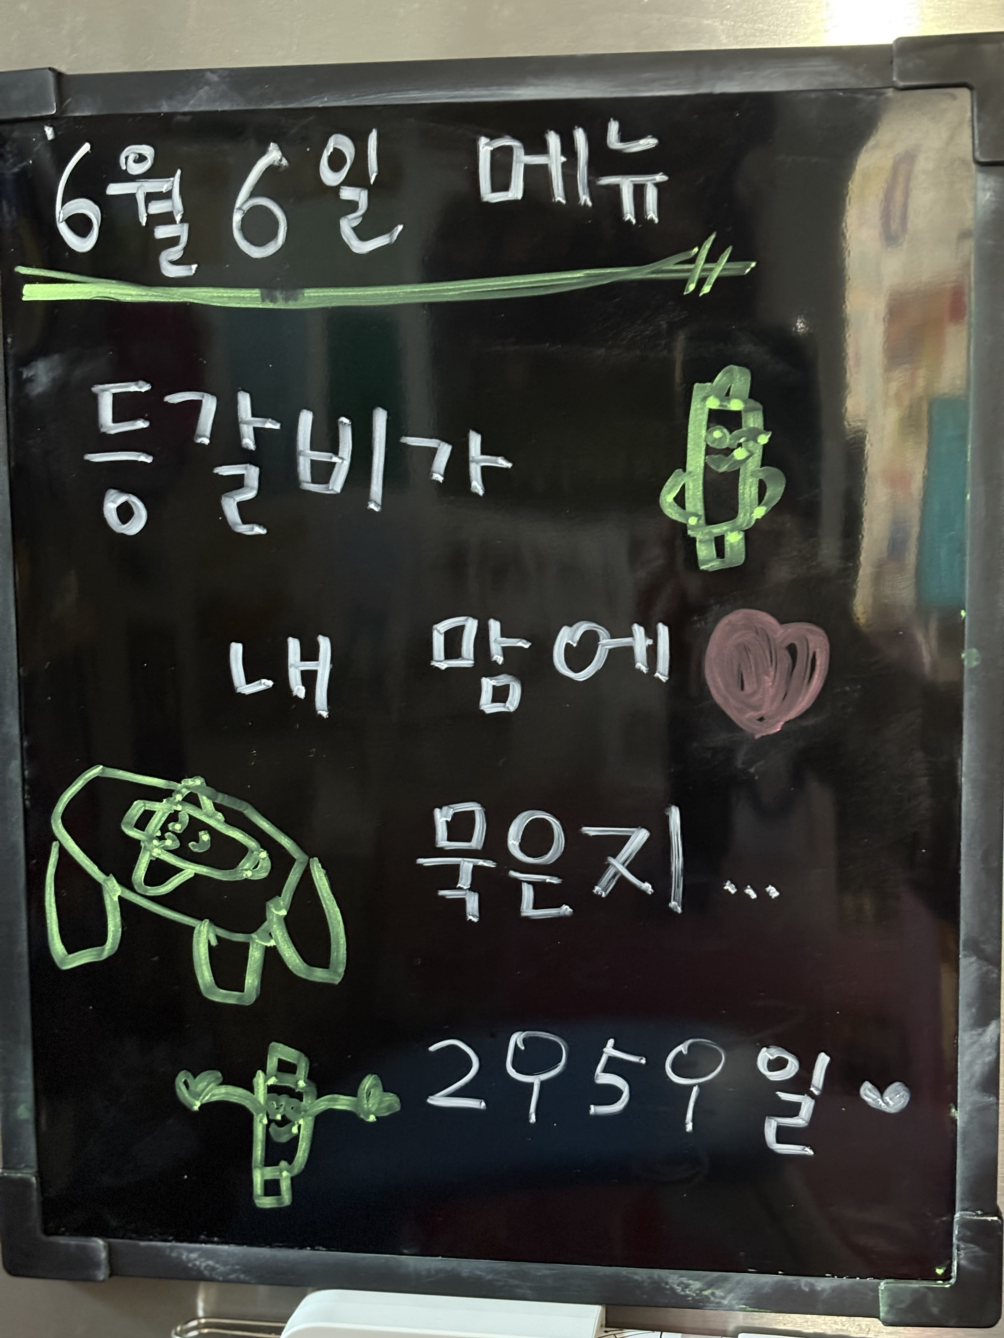 6월 6일 메뉴
등갈비가
내 맘에
묵은지...
2959일